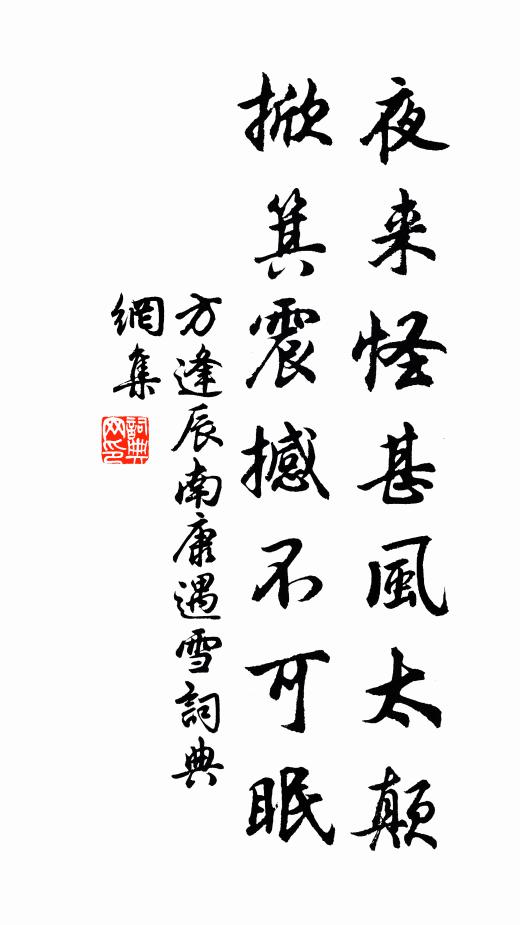 夜来怪甚風太顛
掀箕震撼不可眠
方逢辰南康遇雪詞典
網集
詞典
网印